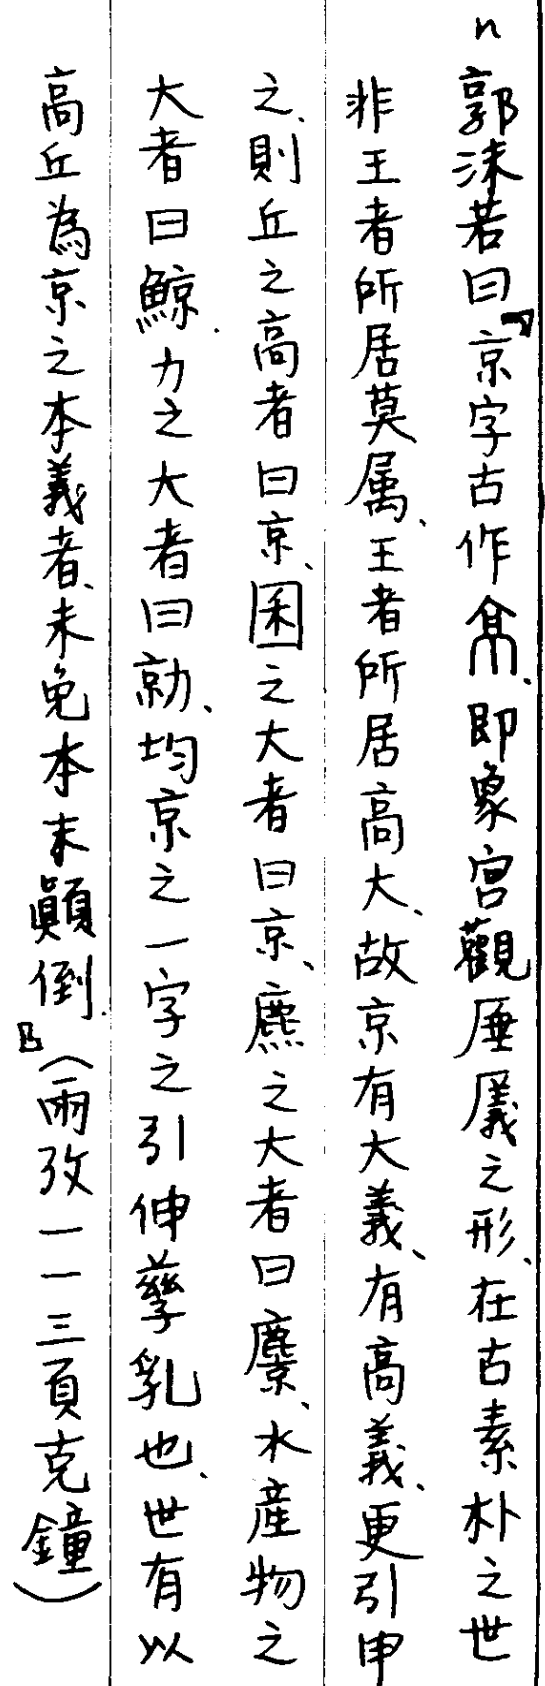 n郭沫若曰『京字古作、即象宮觀厜㕒之形、在古素朴之世
非王者所居莫属、王者所居高大、故京有大義、有高義、更引申
之、則丘之高者曰京、囷之大者曰京、麃之大者曰麖、水產物之
大者曰鯨．力之大者曰勍、均京之一字之引伸孳乳也、世有以
高丘為京之本義者、未免本末顛倒．』（兩攷一一三頁克鐘）